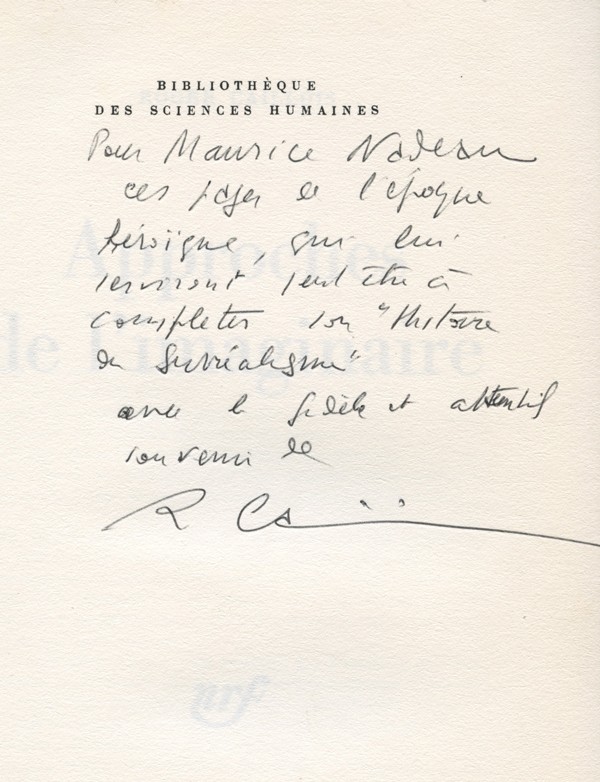 BIBLIOTHÈQUE
DES SCIENCES HUMAINES
Pour Maurice Nadeau
ces pages de l'époque
héroïque, qui lui
serviront peut être à
compléter son "Histoire
du Surréalisme"
avec le fidèle et attentif
souvenir de
R Caillois
Approches
de l'imaginaire
nrf